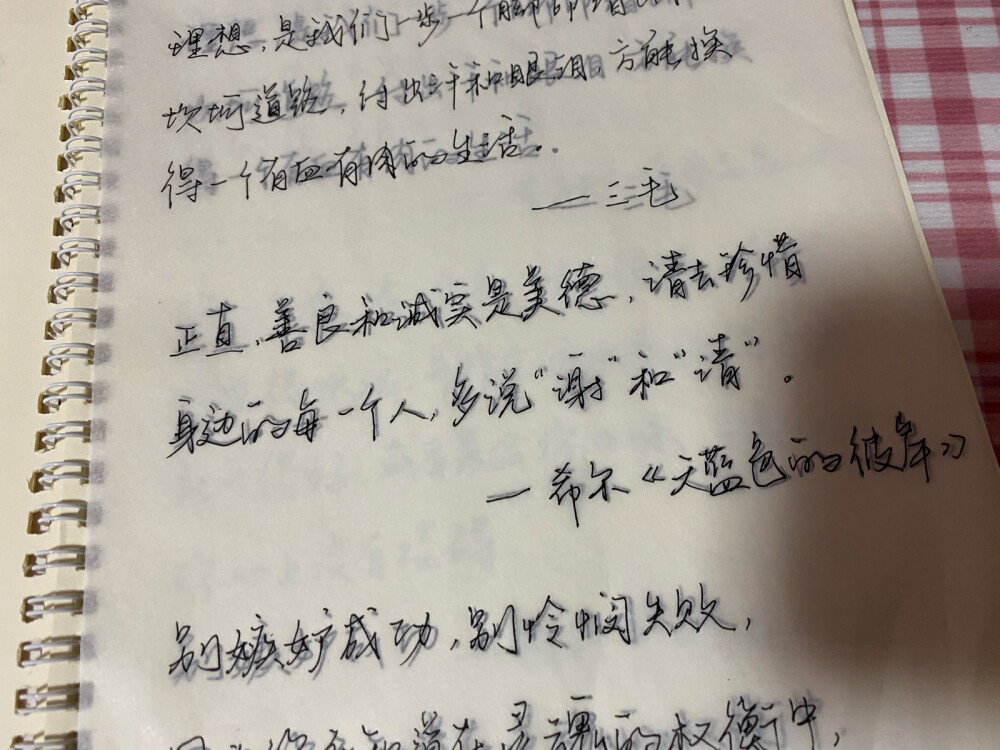 理想，是我们一步一个脚印踏
坎坷道路，付出汗和眼泪，方能换
得一个有血有肉的生活。
——三毛
正直、善良和诚实是美德，请去珍惜
身边的每一个人，多说“谢”和“请”。
——希尔《天蓝色的彼岸》
别嫉妒成功，别怜悯失败，
因为你不知道在灵魂的权衡中，